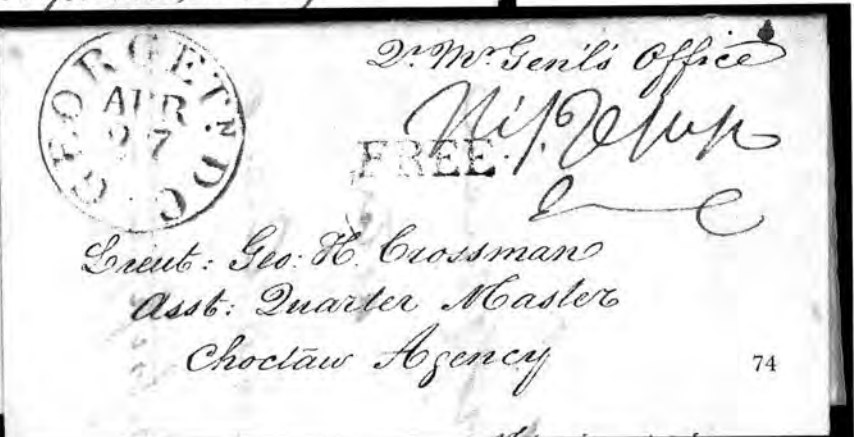 GEORGETN. D.C.
APR
27
Qr. Mr. Genl's Office
FREE
Lieut: Geo: H. Crossman
Asst: Quarter Master
Choctaw Agency
74